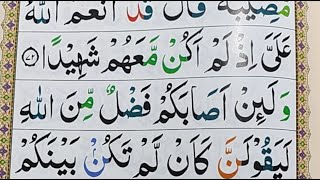 مُّصِيْبَةٌ قَالَ قَدْ اَنْعَمَ اللّٰهُ
عَلَىَّ اِذْ لَمْ اَكُنْ مَّعَهُمْ شَهِيْدًا ۝۷۲
وَلَئِنْ اَصَابَكُمْ فَضْلٌ مِّنَ اللّٰهِ
لَيَقُوْلَنَّ كَاَنْ لَّمْ تَكُنْۢ بَيْنَكُمْ